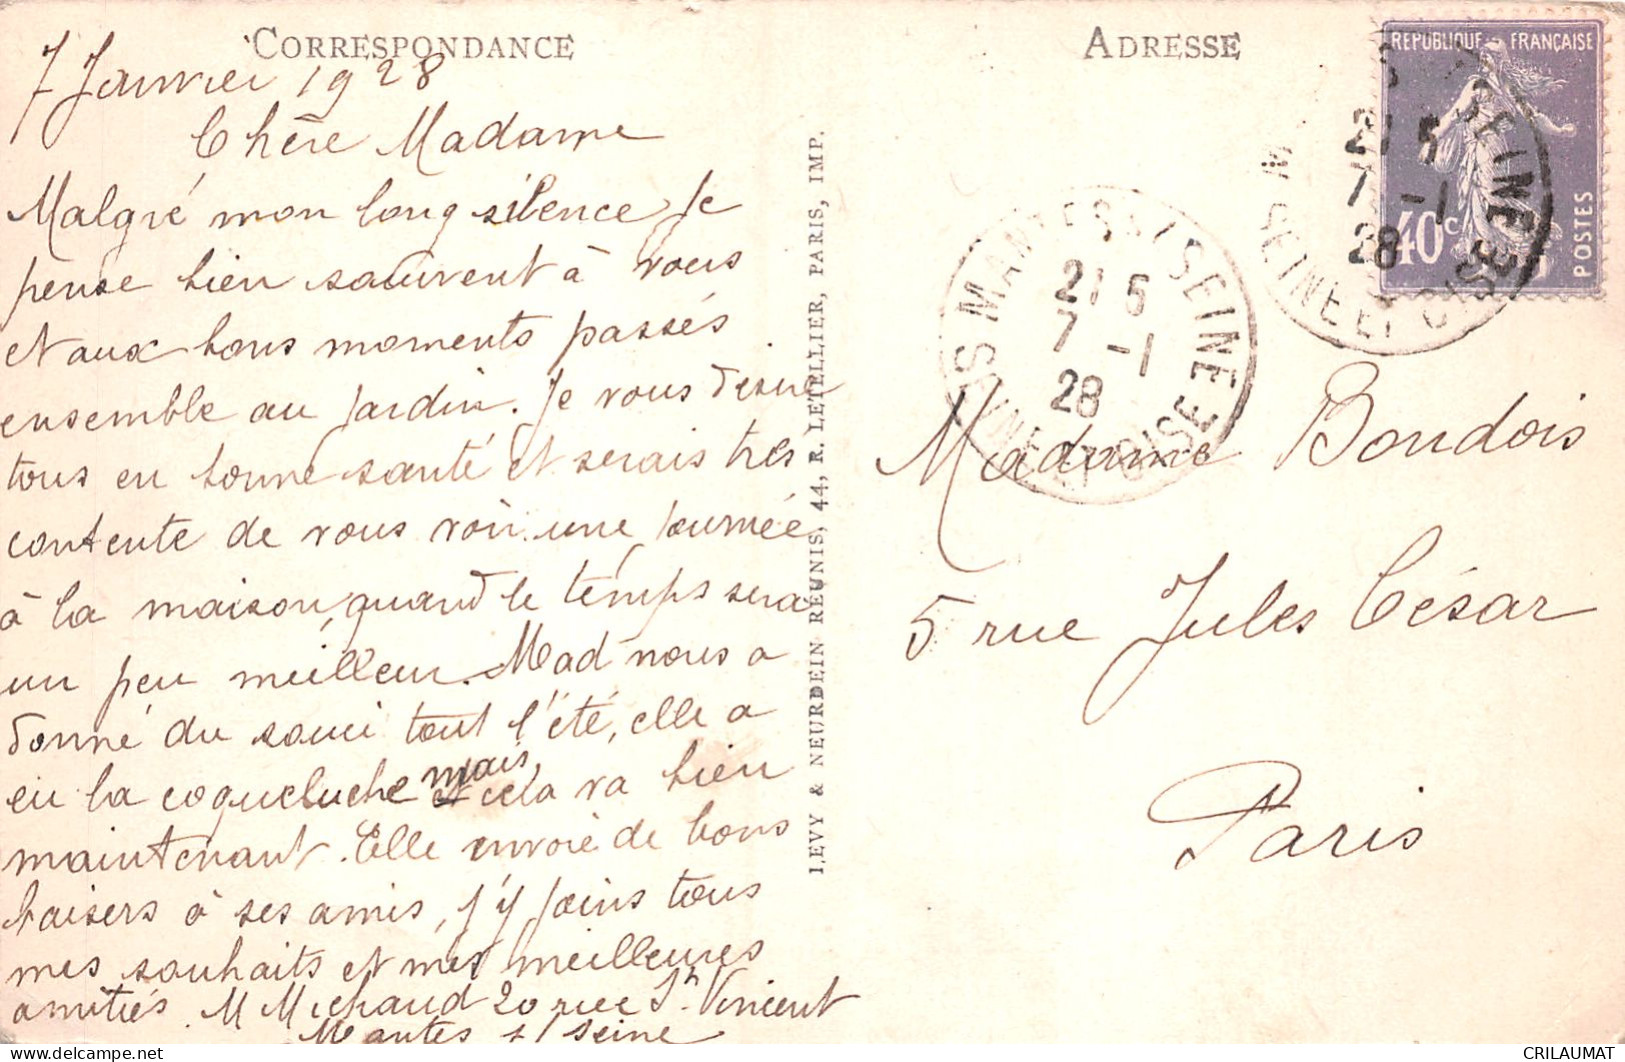 CORRESPONDANCE
7 Janvier 1928
Chère Madame
Malgré mon long silence je
pense bien souvent à vous
et aux bons moments passés
ensemble au jardin. Je vous désire
tous en bonne santé et serais très
contente de vous voir une journée
à la maison, quand le temps sera
un peu meilleur. Mad nous a
donné du souci tout l'été, elle a
eu la coqueluche mais cela va bien
maintenant. Elle envoie de bons
baisers à ses amis, j'y joins tous
mes souhaits et mes meilleures
amitiés. M Michaud 20 rue St Vincent
Mantes s/ Seine
LEVY & NEURDEIN REUNIS, 44, R. LETELLIER, PARIS, IMP.
ADRESSE
REPUBLIQUE FRANÇAISE
40c
POSTES
21 5
7 -1
28
MANTES S/SEINE
SEINE ET OISE
21 5
7 -1
28
SEINE ET OISE
Madame Boudois
5 rue Jules César
Paris
CRILAUMAT